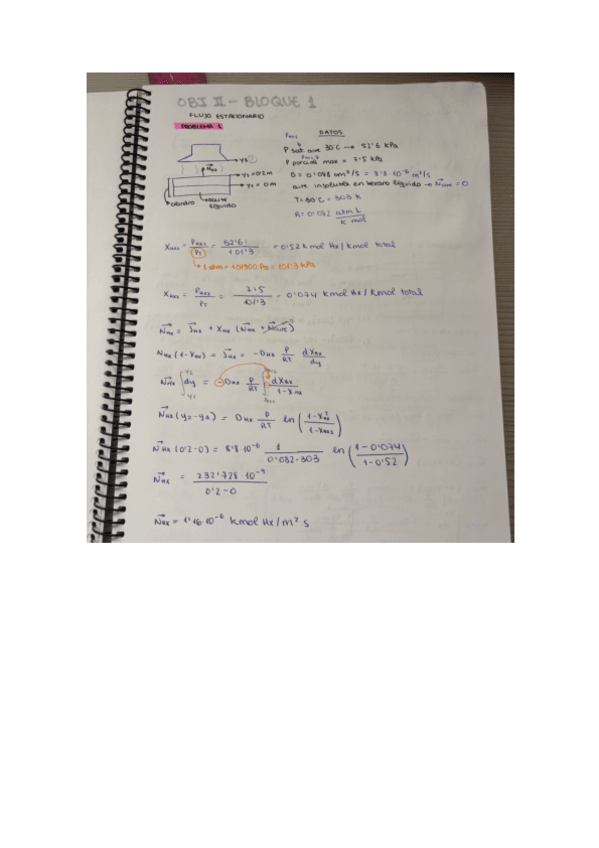 OBI II - BLOQUE 1
FLUJO ESTACIONARIO
PROBLEMA 1
DATOS
P sat. aire 30°C → 52'6 kPa
P parcial max = 7.5 kPa
D = 0'088 cm²/s = 8'8·10⁻⁶ m²/s
aire insoluble en hexano líquido → N = 0
T = 30°C = 303 K
R = 0'082 atm L / K mol
y₂ = 0.2 m
y₁ = 0 m
hexano líquido
X = P / P_T = 52'6 / 101'3 = 0'52 kmol Hx / kmol total
1 atm = 101300 Pa = 101'3 kPa
X = P / P_T = 7.5 / 101'3 = 0'074 kmol Hx / kmol total
N_Hx = J_Hx + X_Hx (N_Hx + N_aire)
N_Hx (1 - X_Hx) = J_Hx = - D_Hx P/RT dX_Hx/dy
N_Hx ∫ dy = - D_Hx P/RT ∫ dX_Hx / 1 - X_Hx
N_Hx (y₂ - y₁) = D_Hx P/RT ln
N_Hx (0'2 - 0) = 8'8·10⁻⁶ 1 / 0'082·303 ln (1 - 0'074 / 1 - 0'52)
N_Hx = 232'728·10⁻⁹ / 0'2 - 0
N_Hx = 1'16·10⁻⁶ kmol Hx/m² s